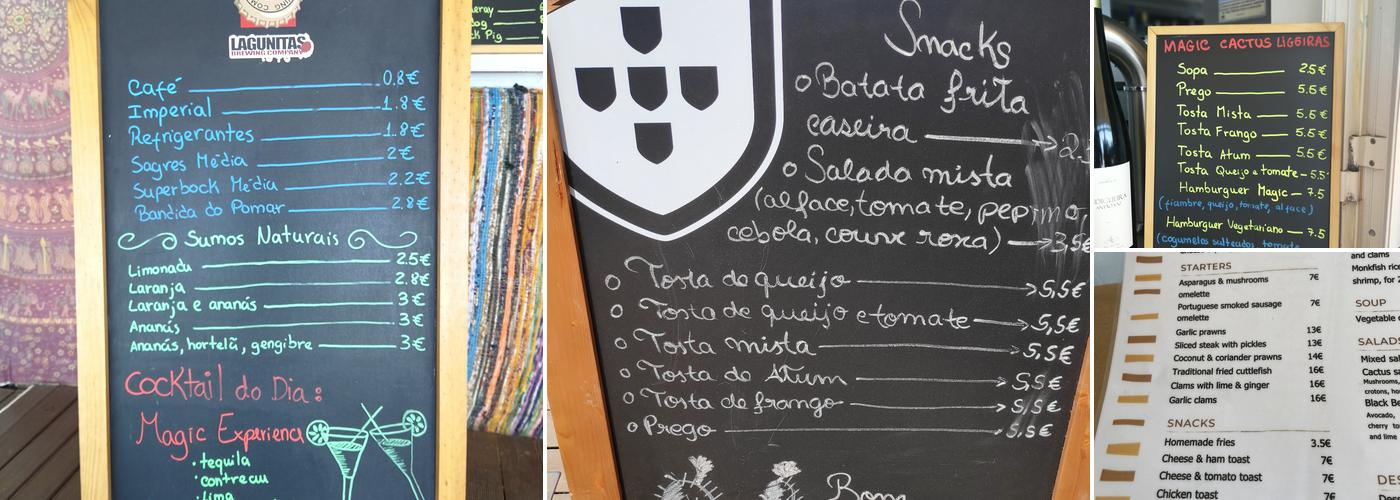 LAGUNITAS
BREWING COMPANY
Café 0.8€
Imperial 1.8€
Refrigerantes 1.8€
Sagres Média 2€
Superbock Média 2.2€
Bandida do Pomar 2.8€
Sumos Naturais
Limonada 2.5€
Laranja 2.8€
Laranja e ananás 3€
Ananás 3€
Ananás, hortelã, gengibre 3€
Cocktail do Dia:
Magic Experience
• tequila
• contreau
• lima
Snacks
o Batata frita
caseira
o Salada mista
(alface, tomate, pepino,
cebola, couve roxa) 3,5€
o Tosta de queijo 5,5€
o Tosta de queijo e tomate 5,5€
o Tosta mista 5,5€
o Tosta de Atum 5,5€
o Tosta de frango 5,5€
o Prego 5,5€
Bom
MAGIC CACTUS LIGEIRAS
Sopa 2.5€
Prego 5.5€
Tosta Mista 5.5€
Tosta Frango 5.5€
Tosta Atum 5.5€
Tosta Queijo e tomate 5.5
Hamburguer Magic 7.5
(fiambre, queijo, tomate, alface)
Hamburguer Vegetariano 7.5
(cogumelos salteados, tomate
STARTERS
Asparagus & mushrooms 7€
omelette
Portuguese smoked sausage 7€
omelette
Garlic prawns 13€
Sliced steak with pickles 13€
Coconut & coriander prawns 14€
Traditional fried cuttlefish 16€
Clams with lime & ginger 16€
Garlic clams 16€
SNACKS
Homemade fries 3.5€
Cheese & ham toast 7€
Cheese & tomato toast 7€
Chicken toast
and clams
Monkfish rice
shrimp, for 2
SOUP
Vegetable
SALADS
Mixed sal
Cactus sa
Mushrooms,
crotons, ho
Black Be
Avocado,
cherry to
and lime
DE